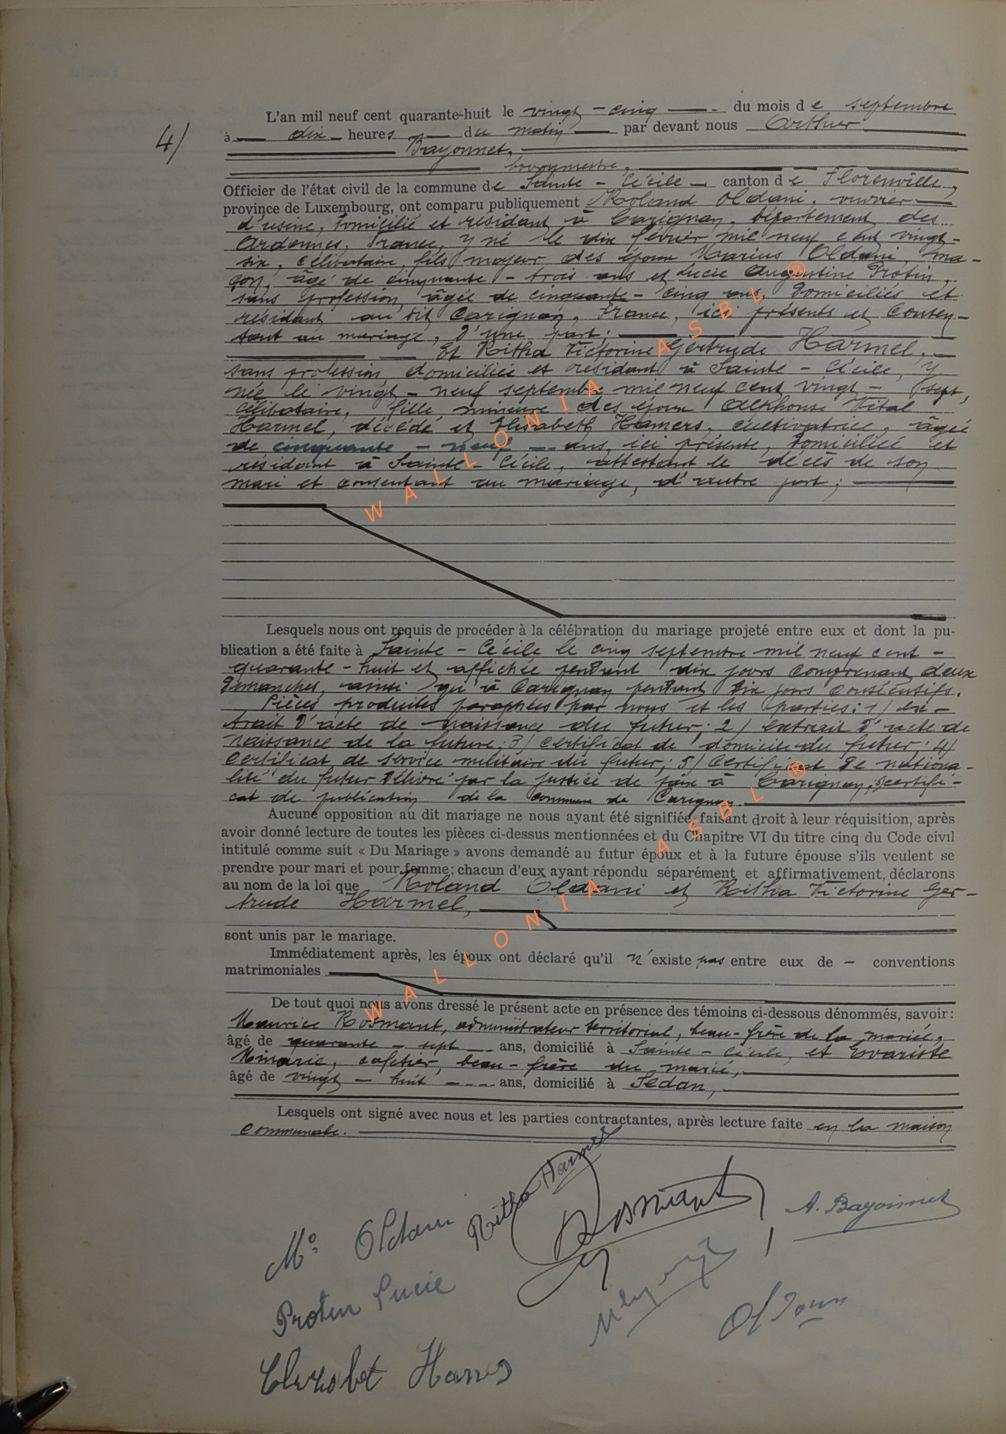 4/
L'an mil neuf cent quarante-huit le vingt-cinq du mois de septembre
à dix heures du matin par devant nous Arthur
Bayonnet,
bourgmestre,
Officier de l'état civil de la commune de Sainte-Cécile canton de Florenville,
province de Luxembourg, ont comparu publiquement Roland Oldani, ouvrier
d'usine, domicilié et résidant à Carignan, Département des
Ardennes, France, y né le dix février mil neuf cent vingt-
six, célibataire, fils majeur des époux Marius Oldani, ma-
çon, âgé de cinquante-trois ans et Lucie Augustine Protin,
sans profession, âgée de cinquante-cinq ans, domiciliés et
résidant au dit Carignan, France, ici présents et consen-
tant au mariage, d'une part;
Et Ritha Victorine Gertrude Harmel,
sans profession, domiciliée et résidant à Sainte-Cécile, y
née le vingt-neuf septembre mil neuf cent vingt-sept,
célibataire, fille mineure des époux Alphonse Vital
Harmel, décédé et Elisabeth Hamers, cultivatrice, âgée
de cinquante-neuf ans, ici présente, domiciliée et
résidant à Sainte-Cécile, attestant le décès de son
mari et consentant au mariage, d'autre part;
Lesquels nous ont requis de procéder à la célébration du mariage projeté entre eux et dont la pu-
blication a été faite à Sainte-Cécile le cinq septembre mil neuf cent-
quarante-huit et affichée pendant dix jours comprenant deux
dimanches, ainsi qu'à Carignan pendant dix jours consécutifs.
Pièces produites paraphées par nous et les parties: 1/ ex-
trait d'acte de naissance du futur; 2/ extrait d'acte de
naissance de la future; 3/ certificat de domicile du futur; 4/
certificat de service militaire du futur; 5/ certificat de nationa-
lité du futur délivré par la justice de paix à Carignan, certifi-
cat de publication de la commune de Carignan.
Aucune opposition au dit mariage ne nous ayant été signifiée, faisant droit à leur réquisition, après
avoir donné lecture de toutes les pièces ci-dessus mentionnées et du Chapitre VI du titre cinq du Code civil
intitulé comme suit « Du Mariage » avons demandé au futur époux et à la future épouse s'ils veulent se
prendre pour mari et pour femme; chacun d'eux ayant répondu séparément et affirmativement, déclarons
au nom de la loi que Roland Oldani et Ritha Victorine Ger-
trude Harmel,
sont unis par le mariage.
Immédiatement après, les époux ont déclaré qu'il n'existe pas entre eux de conventions
matrimoniales
De tout quoi nous avons dressé le présent acte en présence des témoins ci-dessous dénommés, savoir:
Maurice Rosmant, administrateur territorial, beau-frère de la mariée,
âgé de quarante-sept ans, domicilié à Sainte-Cécile, et Evariste
cafetier, beau-frère du marié,
âgé de vingt-huit ans, domicilié à Sedan,
Lesquels ont signé avec nous et les parties contractantes, après lecture faite en la maison
communale.
Ritha Harmel
Rosmant
A. Bayonnet
Mº Oldani
Protin Lucie
WALLONIA ASBL ®
WALLONIA ASBL ®